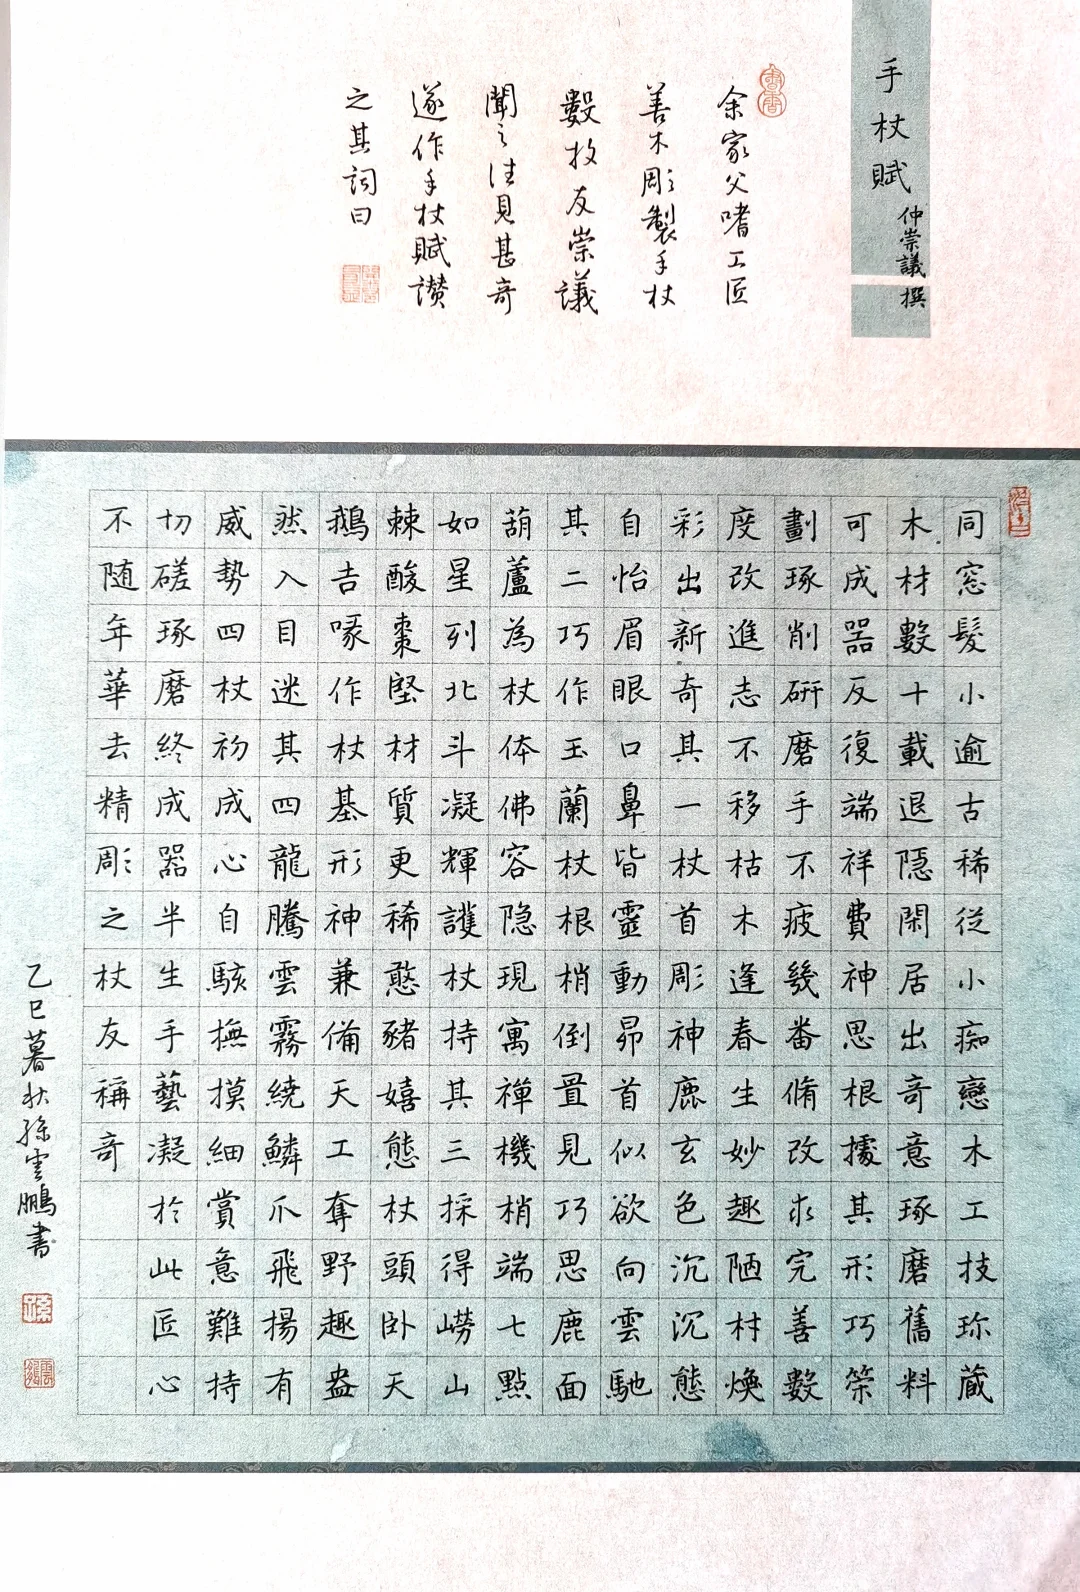 手杖賦
仲崇議 撰
余家父嗜工匠
善木彫製手杖
數枚友崇議
聞之往見甚奇
遂作手杖賦讃
之其詞曰
同窓髮小逾古稀從小痴戀木工技珎蔵
木材數十載退隠閑居出奇意琢磨舊料
可成器反復端祥費神思根據其形巧策
劃琢削研磨手不疲幾番脩改求完善數
度改進志不移枯木逢春生妙趣陋村煥
彩出新奇其一杖首彫神鹿玄色沉沉態
自怡眉眼口鼻皆靈動昴首似欲向雲馳
其二巧作玉蘭杖根梢倒置見巧思鹿面
葫蘆為杖体佛容隐現寓禪機梢端七點
如星列北斗凝輝護杖持其三採得嶗山
棘酸棗堅材質更稀憨豬嬉態杖頭卧天
鵝吉喙作杖基形神兼備天工奪野趣盎
然入目迷其四龍騰雲霧繞鱗爪飛揚有
威勢四杖初成心自駭撫摸細賞意難持
切磋琢磨終成器半生手藝凝於此匠心
不随年華去精彫之杖友稱奇
乙巳暮秋孫雲鵬書